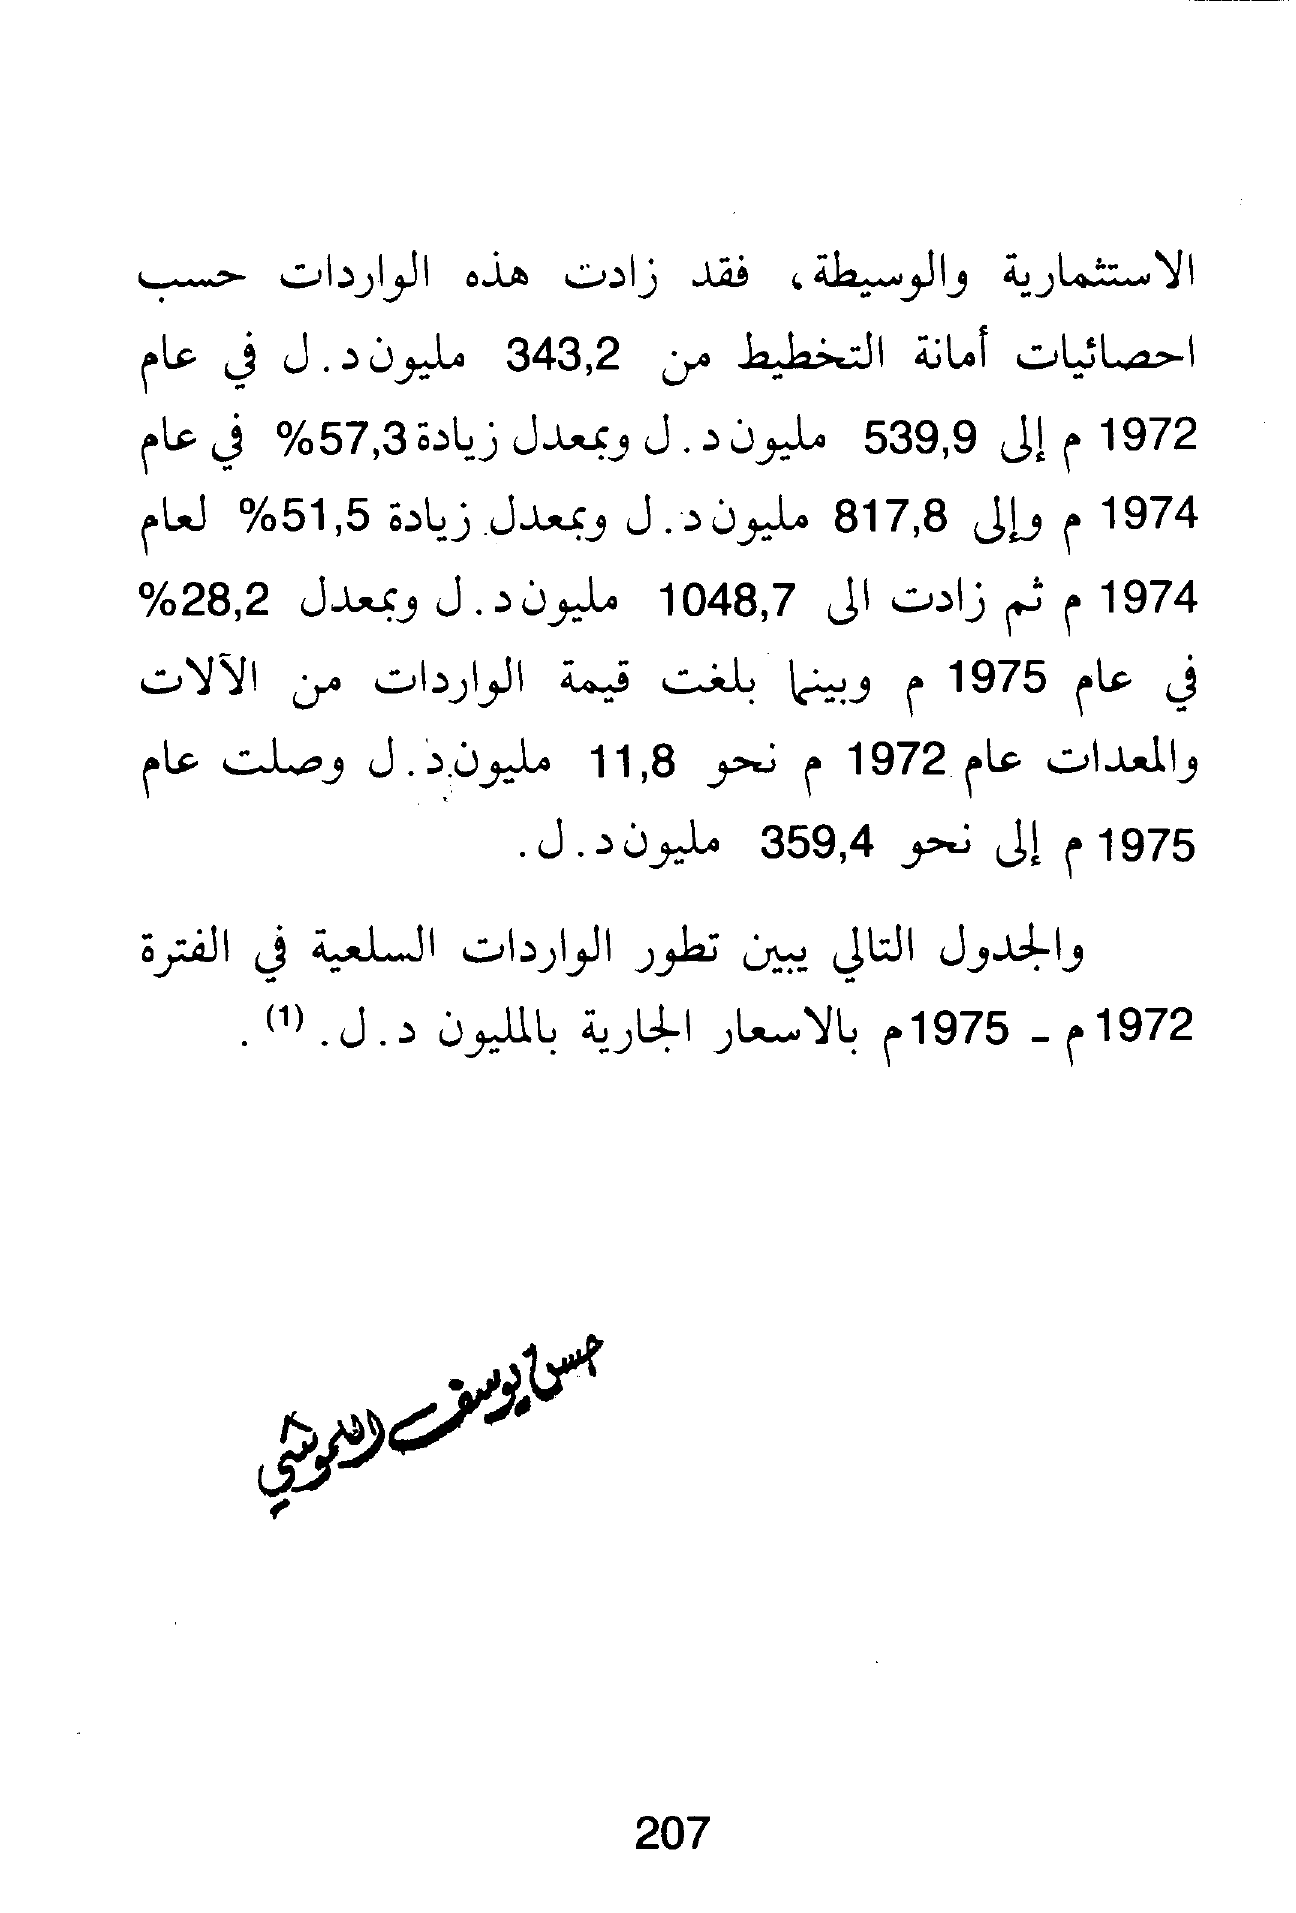 الاستثمارية والوسيطة، فقد زادت هذه الواردات حسب
احصائيات أمانة التخطيط من 343,2 مليون د.ل في عام
1972 م إلى 539,9 مليون د.ل وبمعدل زيادة 57,3% في عام
1974 م وإلى 817,8 مليون د.ل وبمعدل زيادة 51,5% لعام
1974 م ثم زادت الى 1048,7 مليون د.ل وبمعدل 28,2%
في عام 1975 م وبينما بلغت قيمة الواردات من الآلات
والمعدات عام 1972 م نحو 11,8 مليون د.ل وصلت عام
1975 م إلى نحو 359,4 مليون د.ل.
والجدول التالي يبين تطور الواردات السلعية في الفترة
1972 م - 1975 م بالاسعار الجارية بالمليون د.ل. (1) .
حسن يوسف اللموشي
207